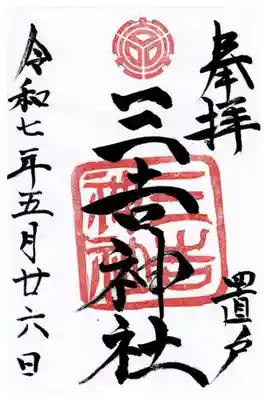 奉拝
置戸
三吉神社
三吉神社
令和七年五月廿六日